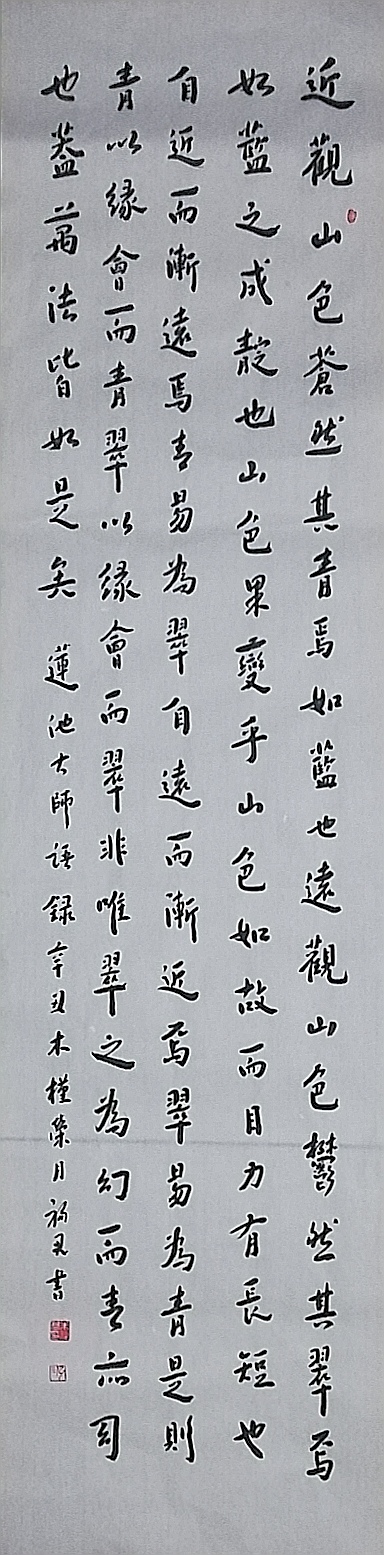 近觀山色蒼然其青焉如藍也遠觀山色鬱然其翠焉
如藍之成靛也山色果變乎山色如故而目力有長短也
自近而漸遠焉青易為翠自遠而漸近焉翠易為青是則
青以緣會而青翠以緣會而翠非唯翠之為幻而青亦幻
也蓋萬法皆如是矣 蓮池大師語錄辛丑木槿榮月書